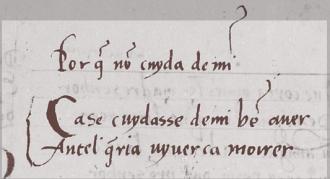 Por q̃ nõ cuyda de mi
Ca se cuydasse de mi bẽ aver
Antel q̃ria uyuer ca morrer